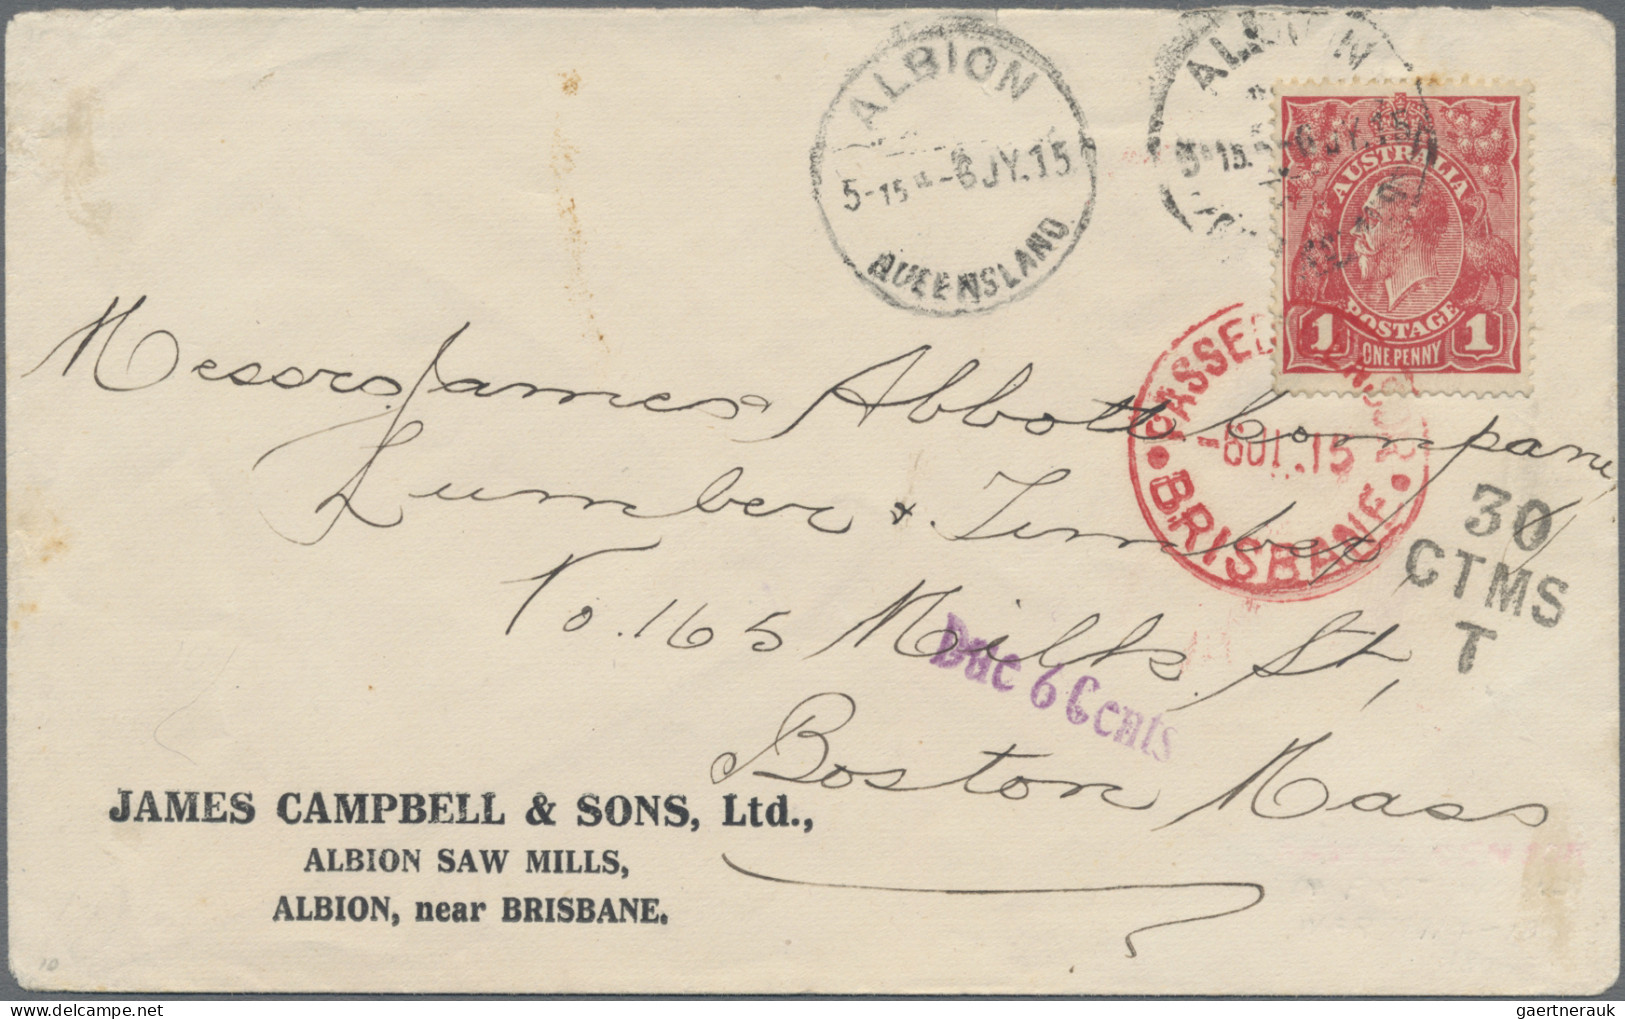 ALBION
5-15 PM -6 JY.15
QUEENSLAND
ALBION
5-15 -6 JY.15
AUSTRALIA
POSTAGE
1 ONE PENNY 1
PASSED CENSOR
-6 JUL.15
BRISBANE
Messrs James Abbott Company
Lumber & Timber
No. 165 Milk St,
Boston Mass
30
CTMS
T
Due 6 Cents
JAMES CAMPBELL & SONS, Ltd.,
ALBION SAW MILLS,
ALBION, near BRISBANE.
10
gaertnerauk